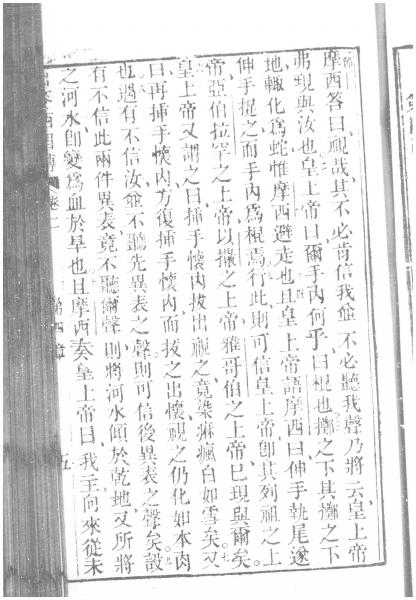 摩西答曰視哉其不必肯信我䨇不必聽我聲乃將云皇上帝
弗現與汝也皇上帝曰爾手內何乎曰棍也擲之下其擲之下
地輙化爲蛇惟摩西避走也且皇上帝語摩西曰伸手執尾遂
伸手捉之而手內爲棍焉行此則可信皇上帝卽其列祖之上
帝亞伯拉罕之上帝以撒之上帝雅哥伯之上帝已現與爾矣
皇上帝又謂之曰插手懷內拔出視之竟染痳瘋白如雪矣又
曰再插手懷內方復插手懷內而拔之出懷視之仍化如本肉
也遇有不信汝不聽先異表之聲則可信後異表之聲矣設
有不信此兩件異表竟不聽爾聲則將河水傾於乾地又所將
之河水卽變爲血於旱也且摩西奏皇上帝曰我主向來從未
卷一
第四章
五